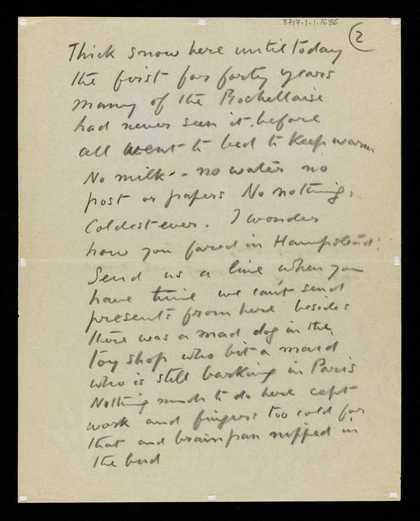 8717-1-1-1686
2
Thick snow here until today
the first for forty years
many of the Rochellaise
had never seen it before
all went to bed to keep warm
No milk - - no water no
post or papers No nothing.
Coldest ever. I wonder
how you fared in Hampstead.
Send us a line when you
have time we can't send
presents from here besides
there was a mad dog in the
toy shop who bit a maid
who is still barking in Paris
Nothing much to do here cept
work and fingers too cold for
that and brainpan nipped in
the bud